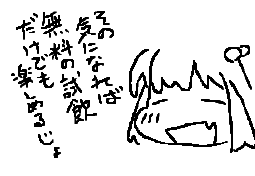 その
気になれば
無料の試飲
だけでも
楽しめるじょ